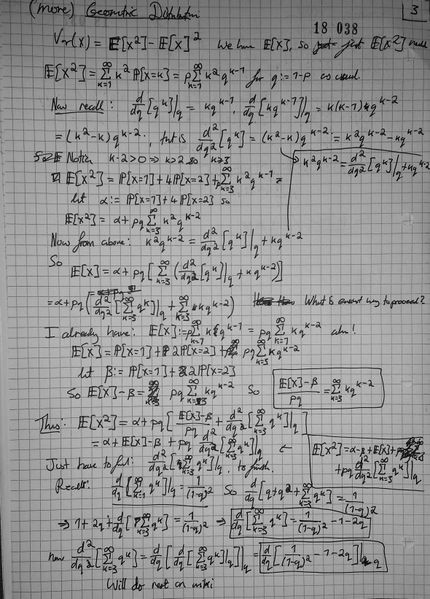 (more) Geometric Distribution 3
18 038
Var(X) = E[X²] - E[X]² We have E[X], so just E[X²] need
E[X²] = Σ_{k=1}^∞ k² P[X=k] = p Σ_{k=1}^∞ k² q^{k-1} for q := 1-p as usual
Now recall: d/dq [q^k]|_q = kq^{k-1}, d/dq [kq^{k-1}]|_q = k(k-1)q^{k-2}
= (k²-k)q^{k-2}, that is d²/dq² [q^k]|_q = (k²-k)q^{k-2} = k²q^{k-2} - kq^{k-2}
Notice k-2>0 => k>2 so k≥3
→ k²q^{k-2} = d²/dq² [q^k]|_q + kq^{k-2}
E[X²] = P[X=1] + 4P[X=2] + p Σ_{k=3}^∞ k² q^{k-1}
Let α := P[X=1] + 4P[X=2] so
E[X²] = α + pq Σ_{k=3}^∞ k² q^{k-2}
Now from above: k²q^{k-2} = d²/dq² [q^k]|_q + kq^{k-2}
So
E[X] = α + pq [Σ_{k=3}^∞ (d²/dq² [q^k]|_q + kq^{k-2})]
= α + pq (d²/dq² [Σ_{k=3}^∞ q^k]|_q + Σ_{k=3}^∞ kq^{k-2}) What is easiest way to proceed?
I already have: E[X] := p Σ_{k=1}^∞ kq^{k-1} = pq Σ_{k=1}^∞ kq^{k-2} aha!
E[X] = P[X=1] + 2P[X=2] + pq Σ_{k=3}^∞ kq^{k-2}
let β := P[X=1] + 2P[X=2]
So E[X] - β = pq Σ_{k=3}^∞ kq^{k-2} So (E[X]-β)/pq = Σ_{k=3}^∞ kq^{k-2}
Thus: E[X²] = α + pq [(E[X]-β)/pq + d²/dq² [Σ_{k=3}^∞ q^k]|_q]
= α + E[X] - β + pq d²/dq² [Σ_{k=3}^∞ q^k]|_q ← E[X²] = α - β + E[X] + pq d²/dq² [Σ_{k=3}^∞ q^k]|_q
Just have to find: d²/dq² [Σ_{k=3}^∞ q^k]|_q, to finish.
Recall: d/dq [Σ_{k=1}^∞ q^k]|_q = 1/(1-q)² So d/dq [q + q² + Σ_{k=3}^∞ q^k] = 1/(1-q)²
=> 1 + 2q + d/dq [Σ_{k=3}^∞ q^k] = 1/(1-q)² => d/dq [Σ_{k=3}^∞ q^k]|_q = 1/(1-q)² - 1 - 2q
now d²/dq² [Σ_{k=3}^∞ q^k] = d/dq [d/dq [Σ_{k=3}^∞ q^k]|_q]|_q = d/dq [1/(1-q)² - 1 - 2q]|_q
Will do rest on wiki